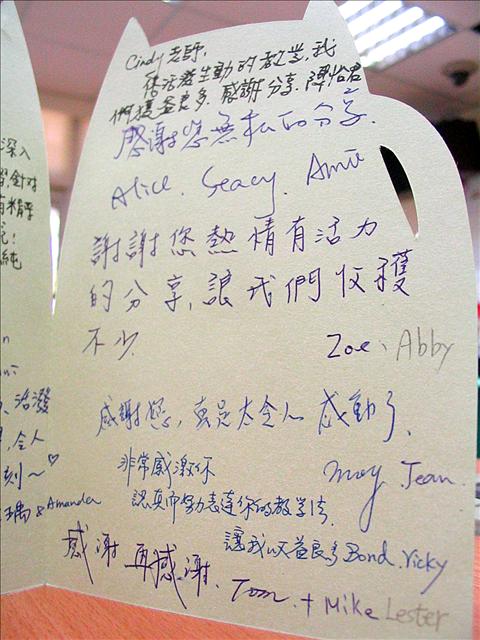 Cindy 老師,
您活潑生動的教学,我
們獲益良多.感謝分享.陳怡君
感謝您無私的分享.
Alice. Seacy. Amie
謝謝您熱情有活力
的分享,讓我們收獲
不少.
Zoe、Abby
感謝您,真是太令人感動了.
May Jean.
非常感激你
認真而努力表達你的教学法.
讓我收益良多 Bond. Vicky
感謝再感謝. Tom. + Mike Lester
深入
針對
有精準
純
活潑
令人
刻～♡
瑀 & Amanda